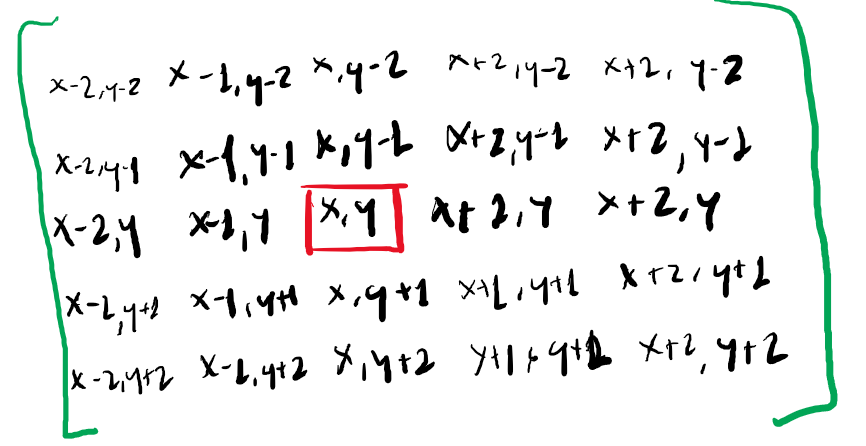 x-2,y-2 x-1,y-2 x,y-2 x+2,y-2 x+2, y-2
x-2,y-1 x-1,y-1 x,y-1 x+2,y-1 x+2,y-1
x-2,y x-1,y x,y x+2,y x+2,y
x-2,y+1 x-1,y+1 x,y+1 x+1,y+1 x+2,y+1
x-2,y+2 x-1,y+2 x,y+2 x+2,y+2